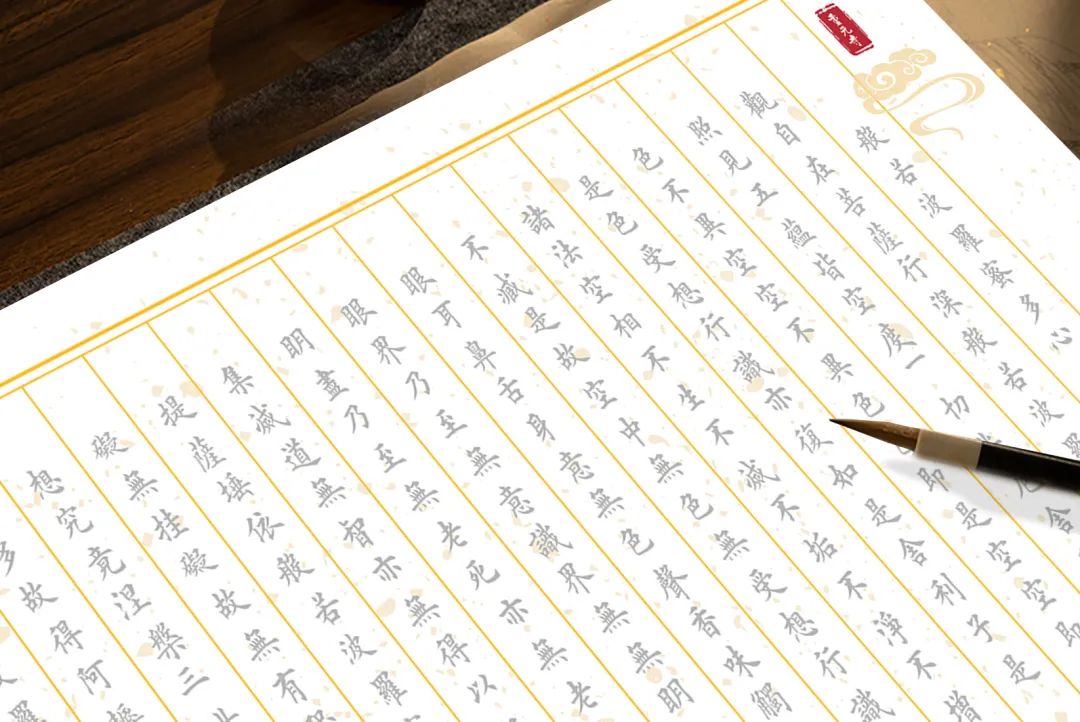 般若波羅蜜多心
觀自在菩薩行深般若波羅
照見五蘊皆空度一切厄舍
色不異空空不異色即是空空即
是色受想行識亦復如是舍利子是
諸法空相不生不滅不垢不淨不增
不減是故空中無色無受想行識
眼耳鼻舌身意無色聲香味觸
眼界乃至無意識界無無明
明盡乃至無老死亦無老
集滅道無智亦無得以
提薩埵依般若波羅
礙無挂礙故無有
想究竟涅槃三
多故得阿